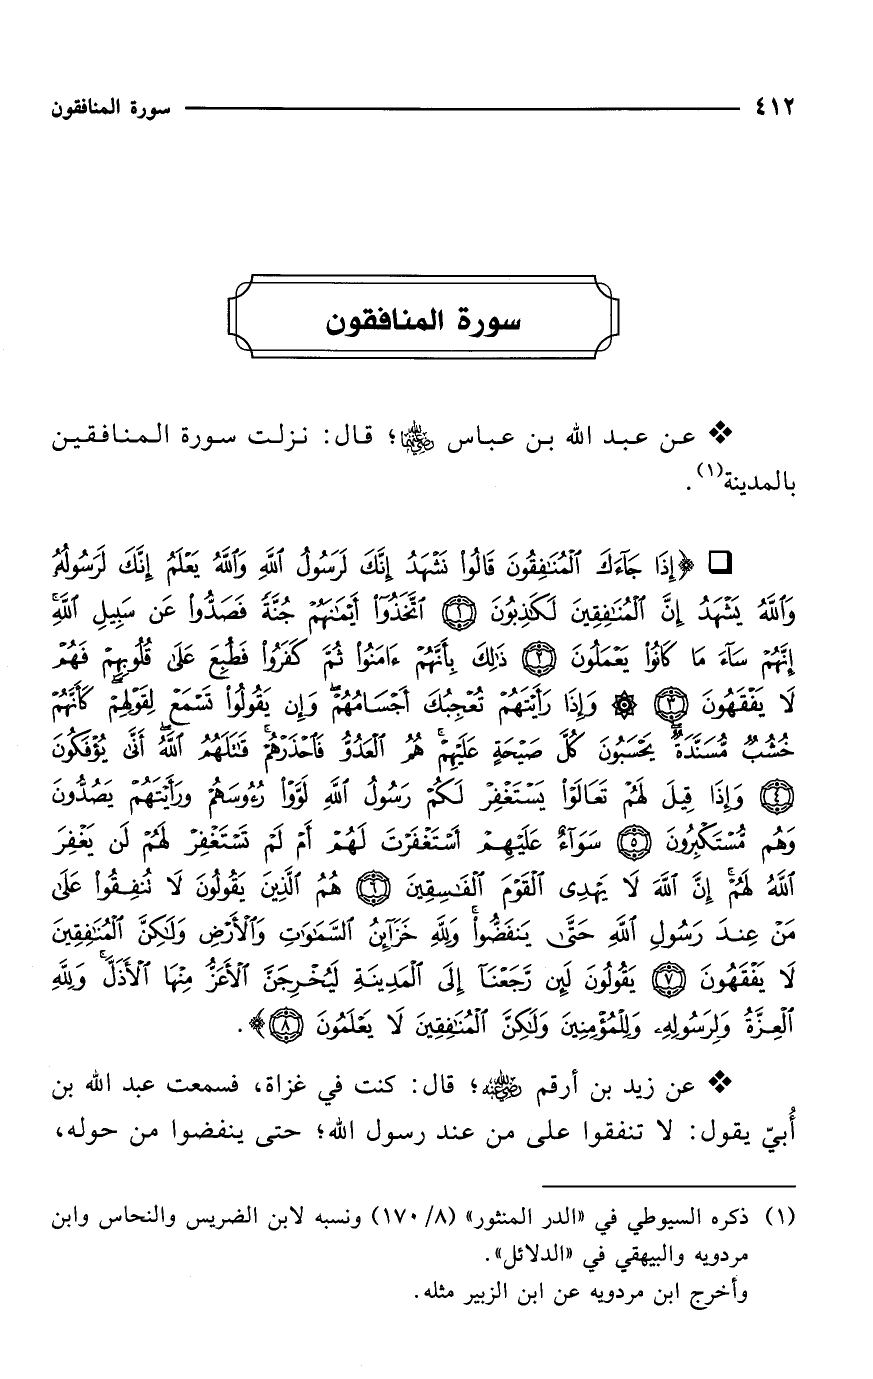 ٤١٢ سورة المنافقون
سورة المنافقون
❖ عن عبد الله بن عباس رضي الله عنهما؛ قال: نزلت سورة المنافقين
بالمدينة(١).
❑ ﴿إِذَا جَآءَكَ ٱلْمُنَٰفِقُونَ قَالُوا۟ نَشْهَدُ إِنَّكَ لَرَسُولُ ٱللَّهِ وَٱللَّهُ يَعْلَمُ إِنَّكَ لَرَسُولُهُۥ
وَٱللَّهُ يَشْهَدُ إِنَّ ٱلْمُنَٰفِقِينَ لَكَٰذِبُونَ ۝١ ٱتَّخَذُوٓا۟ أَيْمَٰنَهُمْ جُنَّةً فَصَدُّوا۟ عَن سَبِيلِ ٱللَّهِ ۚ
إِنَّهُمْ سَآءَ مَا كَانُوا۟ يَعْمَلُونَ ۝٢ ذَٰلِكَ بِأَنَّهُمْ ءَامَنُوا۟ ثُمَّ كَفَرُوا۟ فَطُبِعَ عَلَىٰ قُلُوبِهِمْ فَهُمْ
لَا يَفْقَهُونَ ۝٣ ۞ وَإِذَا رَأَيْتَهُمْ تُعْجِبُكَ أَجْسَامُهُمْ ۖ وَإِن يَقُولُوا۟ تَسْمَعْ لِقَوْلِهِمْ ۖ كَأَنَّهُمْ
خُشُبٌ مُّسَنَّدَةٌ ۖ يَحْسَبُونَ كُلَّ صَيْحَةٍ عَلَيْهِمْ ۚ هُمُ ٱلْعَدُوُّ فَٱحْذَرْهُمْ ۚ قَٰتَلَهُمُ ٱللَّهُ ۖ أَنَّىٰ يُؤْفَكُونَ
۝٤ وَإِذَا قِيلَ لَهُمْ تَعَالَوْا۟ يَسْتَغْفِرْ لَكُمْ رَسُولُ ٱللَّهِ لَوَّوْا۟ رُءُوسَهُمْ وَرَأَيْتَهُمْ يَصُدُّونَ
وَهُم مُّسْتَكْبِرُونَ ۝٥ سَوَآءٌ عَلَيْهِمْ أَسْتَغْفَرْتَ لَهُمْ أَمْ لَمْ تَسْتَغْفِرْ لَهُمْ لَن يَغْفِرَ
ٱللَّهُ لَهُمْ ۚ إِنَّ ٱللَّهَ لَا يَهْدِى ٱلْقَوْمَ ٱلْفَٰسِقِينَ ۝٦ هُمُ ٱلَّذِينَ يَقُولُونَ لَا تُنفِقُوا۟ عَلَىٰ
مَنْ عِندَ رَسُولِ ٱللَّهِ حَتَّىٰ يَنفَضُّوا۟ ۗ وَلِلَّهِ خَزَآئِنُ ٱلسَّمَٰوَٰتِ وَٱلْأَرْضِ وَلَٰكِنَّ ٱلْمُنَٰفِقِينَ
لَا يَفْقَهُونَ ۝٧ يَقُولُونَ لَئِن رَّجَعْنَآ إِلَى ٱلْمَدِينَةِ لَيُخْرِجَنَّ ٱلْأَعَزُّ مِنْهَا ٱلْأَذَلَّ ۚ وَلِلَّهِ
ٱلْعِزَّةُ وَلِرَسُولِهِۦ وَلِلْمُؤْمِنِينَ وَلَٰكِنَّ ٱلْمُنَٰفِقِينَ لَا يَعْلَمُونَ ۝٨﴾.
❖ عن زيد بن أرقم رضي الله عنه؛ قال: كنت في غزاة، فسمعت عبد الله بن
أُبيّ يقول: لا تنفقوا على من عند رسول الله؛ حتى ينفضوا من حوله،
(١) ذكره السيوطي في «الدر المنثور» (٨/ ١٧٠) ونسبه لابن الضريس والنحاس وابن
مردويه والبيهقي في «الدلائل».
وأخرج ابن مردويه عن ابن الزبير مثله.